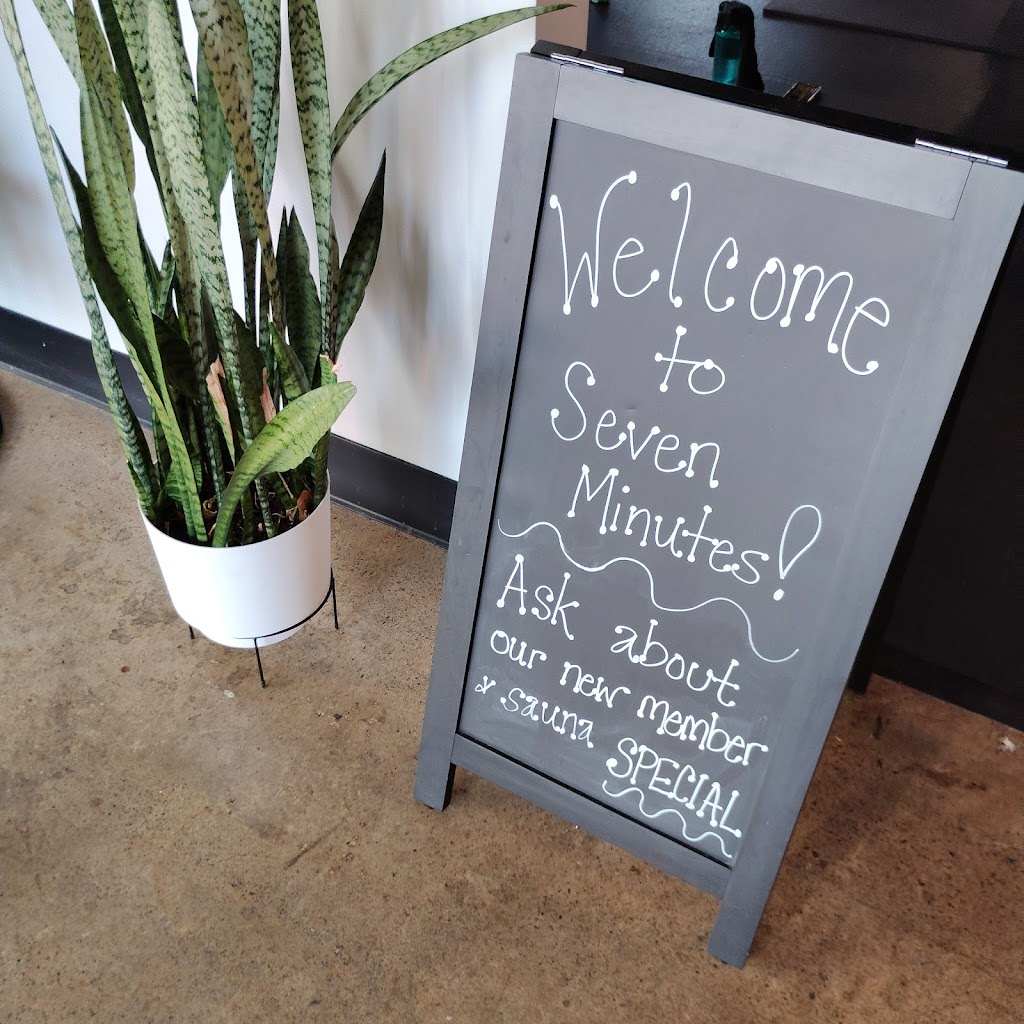 Welcome
to
Seven
Minutes!
Ask about
our new member
& sauna SPECIAL